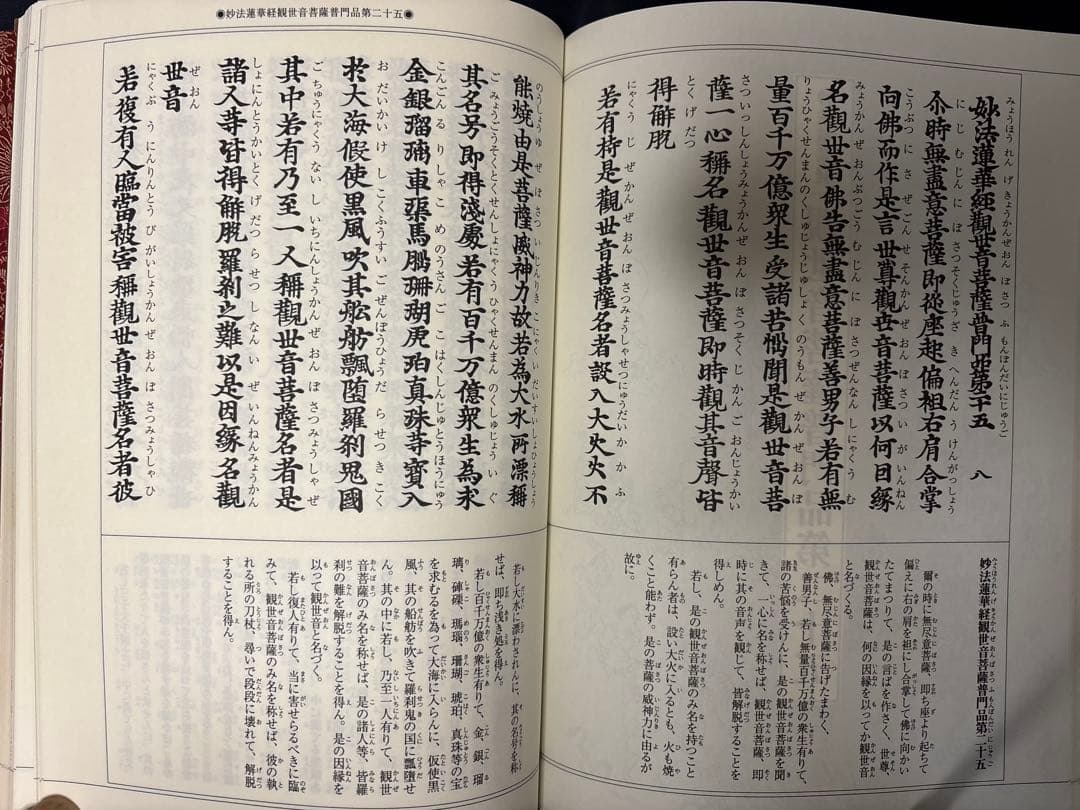 妙法蓮華經觀世音菩薩普門品第二十五 八
尒時無盡意菩薩即從座起偏袒右肩合掌
向佛而作是言世尊觀世音菩薩以何因緣
名觀世音佛告無盡意菩薩善男子若有無
量百千万億衆生受諸苦惱聞是觀世音菩
薩一心稱名觀世音菩薩即時觀其音聲皆
得解脱
若有持是觀世音菩薩名者設入大火火不
妙法蓮華経観世音菩薩普門品第二十五
爾の時に無尽意菩薩、即ち座より起ちて
偏えに右の肩を袒にし合掌して佛に向かい
たてまつりて、是の言ばを作さく、世尊、
観世音菩薩は、何の因縁を以ってか観世音
と名づくる。
佛、無尽意菩薩に告げたまわく、
善男子、若し無量百千万億の衆生有りて、
諸の苦悩を受けんに、是の観世音菩薩を聞
きて、一心に名を称せば、観世音菩薩、即
時に其の音声を観じて、皆解脱することを
得しめん。
若し、是の観世音菩薩のみ名を持つこと
有らん者は、設い大火に入るとも、火も焼
くこと能わず。是の菩薩の威神力に由るが
故に。
●妙法蓮華経観世音菩薩普門品第二十五●
能燒由是菩薩威神力故若為大水所漂稱
其名号即得淺處若有百千万億衆生為求
金銀瑠璃車𤦲馬瑙珊瑚虎珀真珠等寶入
於大海假使黒風吹其舩舫飄堕羅刹鬼國
其中若有乃至一人稱觀世音菩薩名者是
諸人等皆得解脱羅刹之難以是因緣名觀
世音
若復有人臨當被害稱觀世音菩薩名者彼
若し大水に漂わされんに、其の名号を称
せば、即ち浅き処を得ん。
若し百千万億の衆生有りて、金、銀、瑠
璃、硨磲、瑪瑙、珊瑚、琥珀、真珠等の宝
を求むるを為って大海に入らんに、仮使黒
風、其の船舫を吹きて羅刹鬼の国に飄堕せ
ん。其の中に若し、乃至一人有りて、観世
音菩薩のみ名を称せば、是の諸人等、皆羅
刹の難を解脱することを得ん。是の因縁を
以って観世音と名づく。
若し復人有りて、当に害せらるべきに臨
みて、観世音菩薩のみ名を称せば、彼の執
れる所の刀杖、尋いで段段に壊れて、解脱
することを得ん。